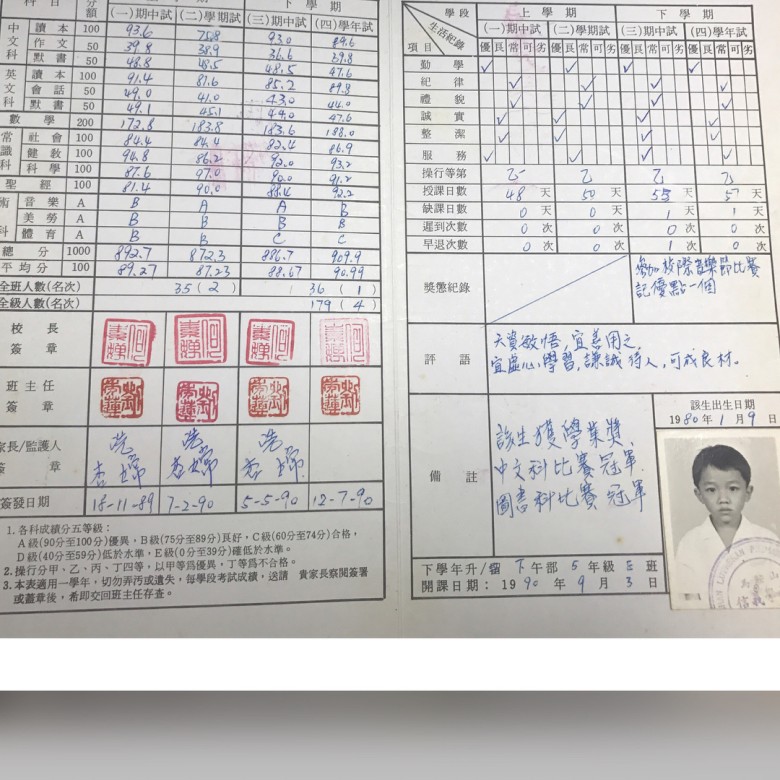 科 目 分額 上 學 期 下 學 期
(一)期中試 (二)學期試 (三)期中試 (四)學年試
中文科 讀本 100 93.6 75.8 93.0 89.6
作文 50 39.8 38.9 36.6 39.8
默書 50 48.8 48.5 48.5 47.6
英文科 讀本 100 91.4 87.6 85.2 89.8
會話 50 49.0 41.0 43.0 44.0
默書 50 49.1 45.1 49.0 47.6
數學 200 172.8 183.8 183.6 188.0
常識科 社會 100 84.4 84.4 82.4 86.9
健教 100 94.8 86.2 92.0 93.2
科學 100 87.6 97.0 90.0 91.2
聖經 100 81.4 90.0 88.4 92.2
術科 音樂 A B A A B
美勞 A B B B B
體育 A B B C C
總分 1000 892.7 872.3 886.7 909.9
平均分 100 89.27 87.23 88.67 90.99
全班人數(名次) 35 (2) 36 (1)
全級人數(名次) 179 (4)
校長簽章
班主任簽章
家長/監護人簽章
簽發日期 18-11-89 7-2-90 5-5-90 12-7-90
1.各科成績分五等級:
A級(90分至100分)優異,B級(75分至89分)良好,C級(60分至74分)合格,
D級(40分至59分)低於水準,E級(0分至39分)確低於水準。
2.操行分甲、乙、丙、丁四等,以甲等爲優異,丁等爲不合格。
3.本表適用一學年,切勿弄污或遺失,每學段考試成績,送請 貴家長察閱簽署
或蓋章後,希即交回班主任存查。
學段 上 學 期 下 學 期
生活紀錄
項目 (一)期中試 (二)學期試 (三)期中試 (四)學年試
優良常可劣 優良常可劣 優良常可劣 優良常可劣
勤學
紀律
禮貌
誠實
整潔
服務
操行等第 乙 乙 乙 乙
授課日數 48 天 50 天 55 天 57 天
缺課日數 0 天 0 天 1 天 1 天
遲到次數 0 次 0 次 0 次 0 次
早退次數 0 次 0 次 1 次 0 次
獎懲紀錄 參加校際音樂節比賽
記優點一個
評語 天資敏悟,宜善用之,
宜虛心學習,謙誠待人,可成良材。
備註 該生獲學業獎,
中文科比賽冠軍
圖書科比賽冠軍
該生出生日期
1980年1月9日
下學年升/留 下午部 5 年級 E 班
開課日期:1990 年 9 月 3 日